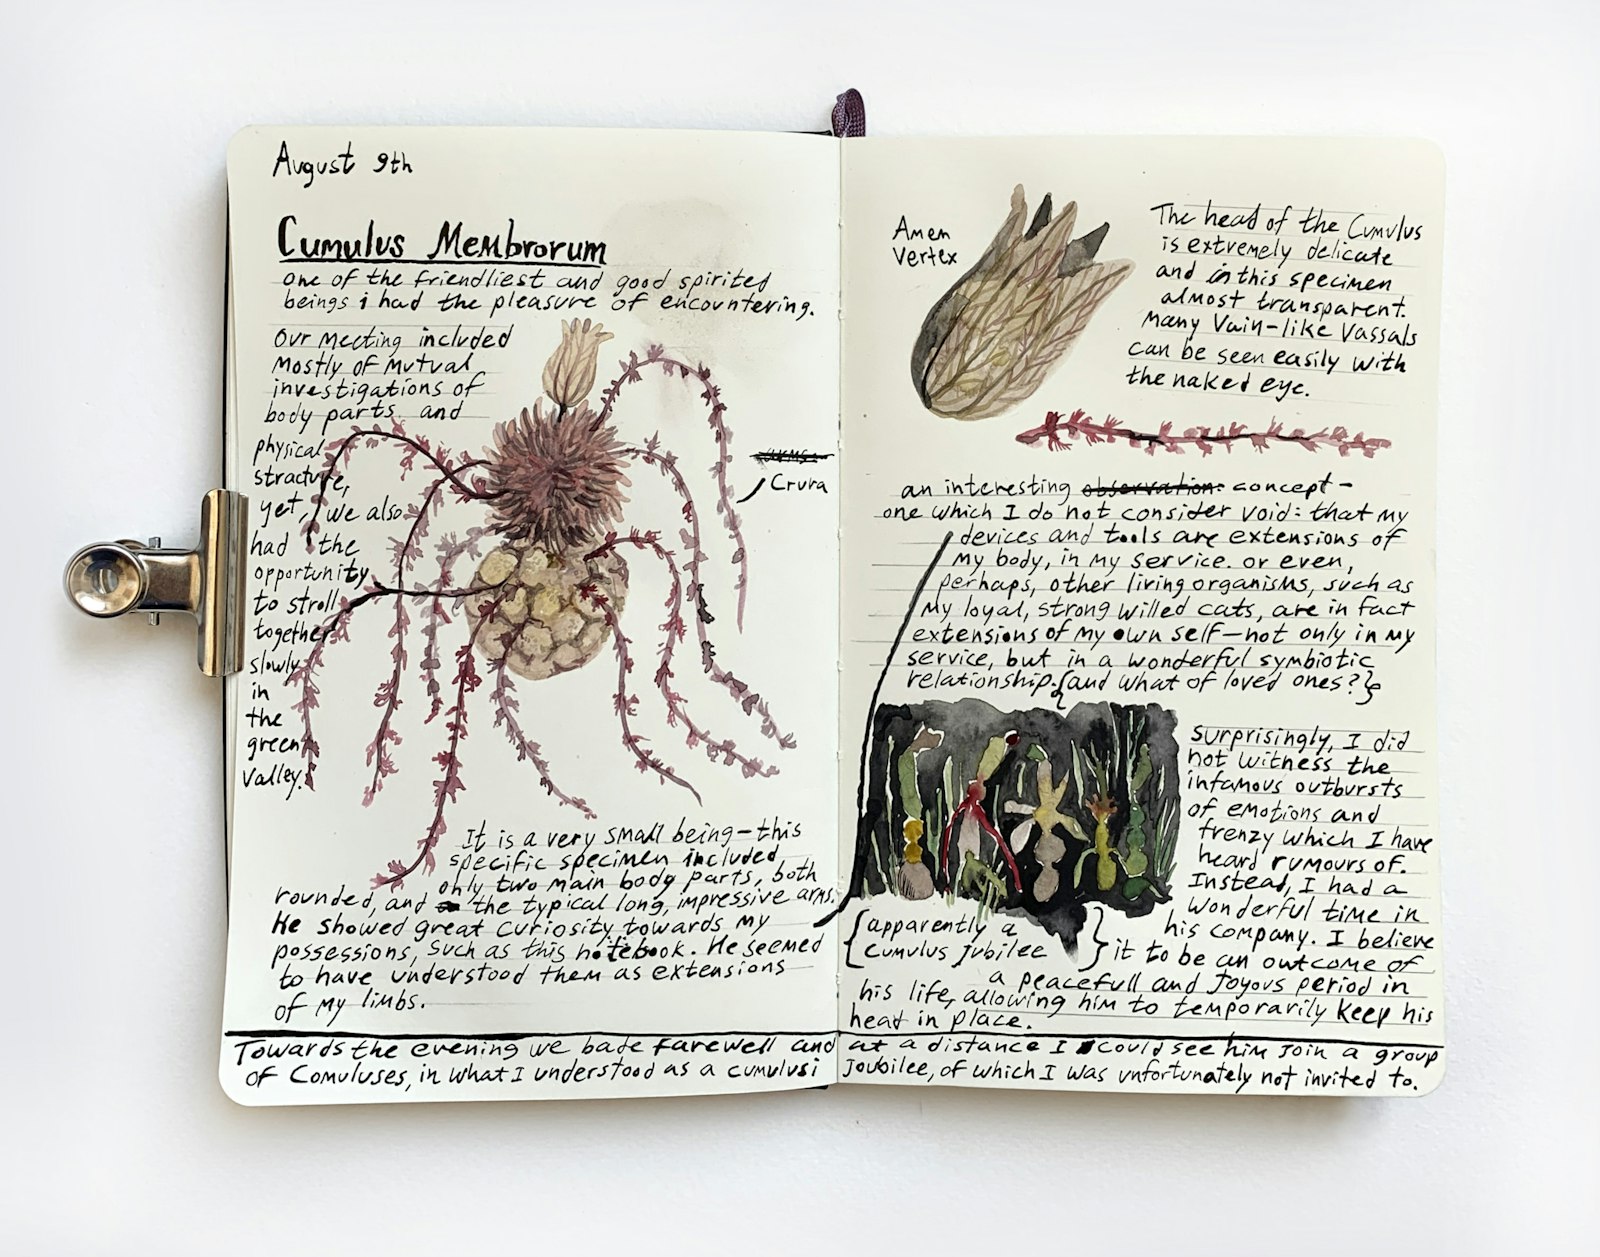 August 9th
Cumulus Membrorum
one of the friendliest and good spirited
beings i had the pleasure of encountering.
Our meeting included
mostly of mutual
investigations of
body parts and
physical
structure,
yet, we also
had the
opportunity
to stroll
together
slowly
in
the
green
valley.
arms
Crura
It is a very small being—this
specific specimen included
only two main body parts, both
rounded, and the typical long, impressive arms.
He showed great curiosity towards my
possessions, such as this notebook. He seemed
to have understood them as extensions
of my limbs.
Amen
Vertex
The head of the Cumulus
is extremely delicate
and in this specimen
almost transparent.
Many Vain-like Vassals
can be seen easily with
the naked eye.
an interesting observation: concept—
one which I do not consider void: that my
devices and tools are extensions of
my body, in my service. or even,
perhaps, other living organisms, such as
my loyal, strong willed cats, are in fact
extensions of my own self—not only in my
service, but in a wonderful symbiotic
relationship. {and what of loved ones?}
Surprisingly, I did
not witness the
infamous outbursts
of emotions and
frenzy which I have
heard rumours of.
Instead, I had a
wonderful time in
his company. I believe
{apparently a
cumulus jubilee}
it to be an outcome of
a peacefull and Joyous period in
his life, allowing him to temporarily keep his
head in place.
Towards the evening we bade farewell and at a distance I could see him join a group
of Comuluses, in what I understood as a cumulusi Joubilee, of which I was unfortunately not invited to.